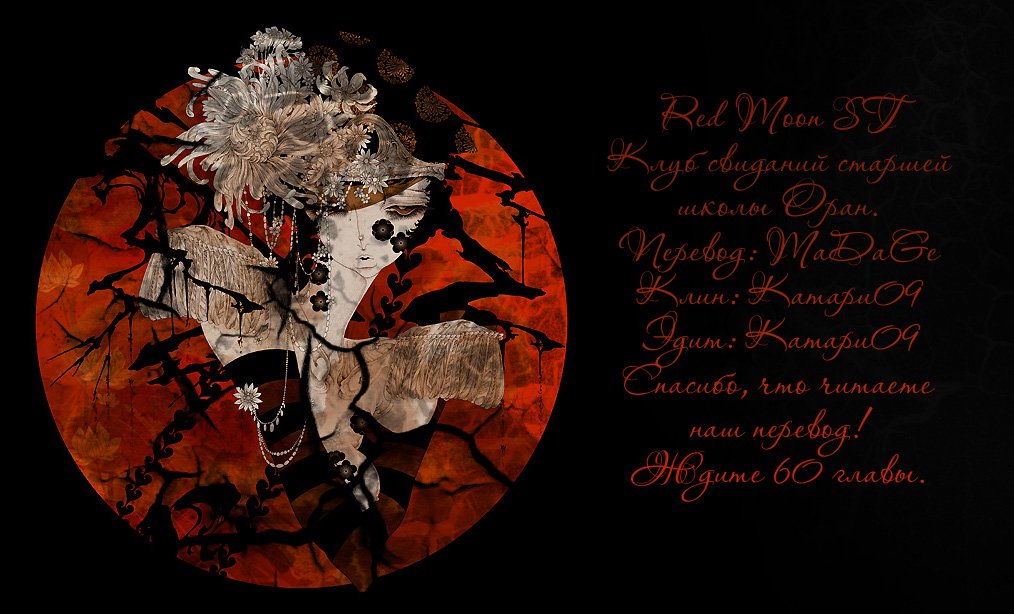 Red Moon ST
Клуб свиданий старшей
школы Оран.
Перевод: MaDaGe
Клин: Катари09
Эдит: Катари09
Спасибо, что читаете
наш перевод!
Ждите 60 главы.